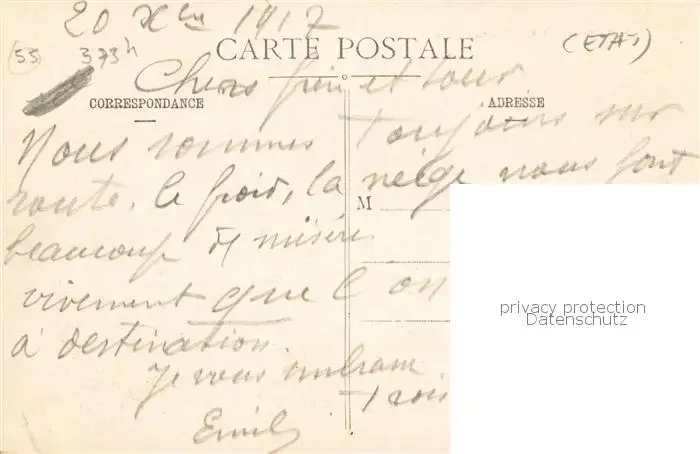 20 Xbre 1917
(55) 373h
CARTE POSTALE
(ETAT)
Chers frère et soeur
CORRESPONDANCE
ADRESSE
Nous sommes toujours sur
route. le froid, la neige nous font
M
beaucoup de misère
vivement que l on
à destination.
Je vous embrasse
Emile
privacy protection
Datenschutz